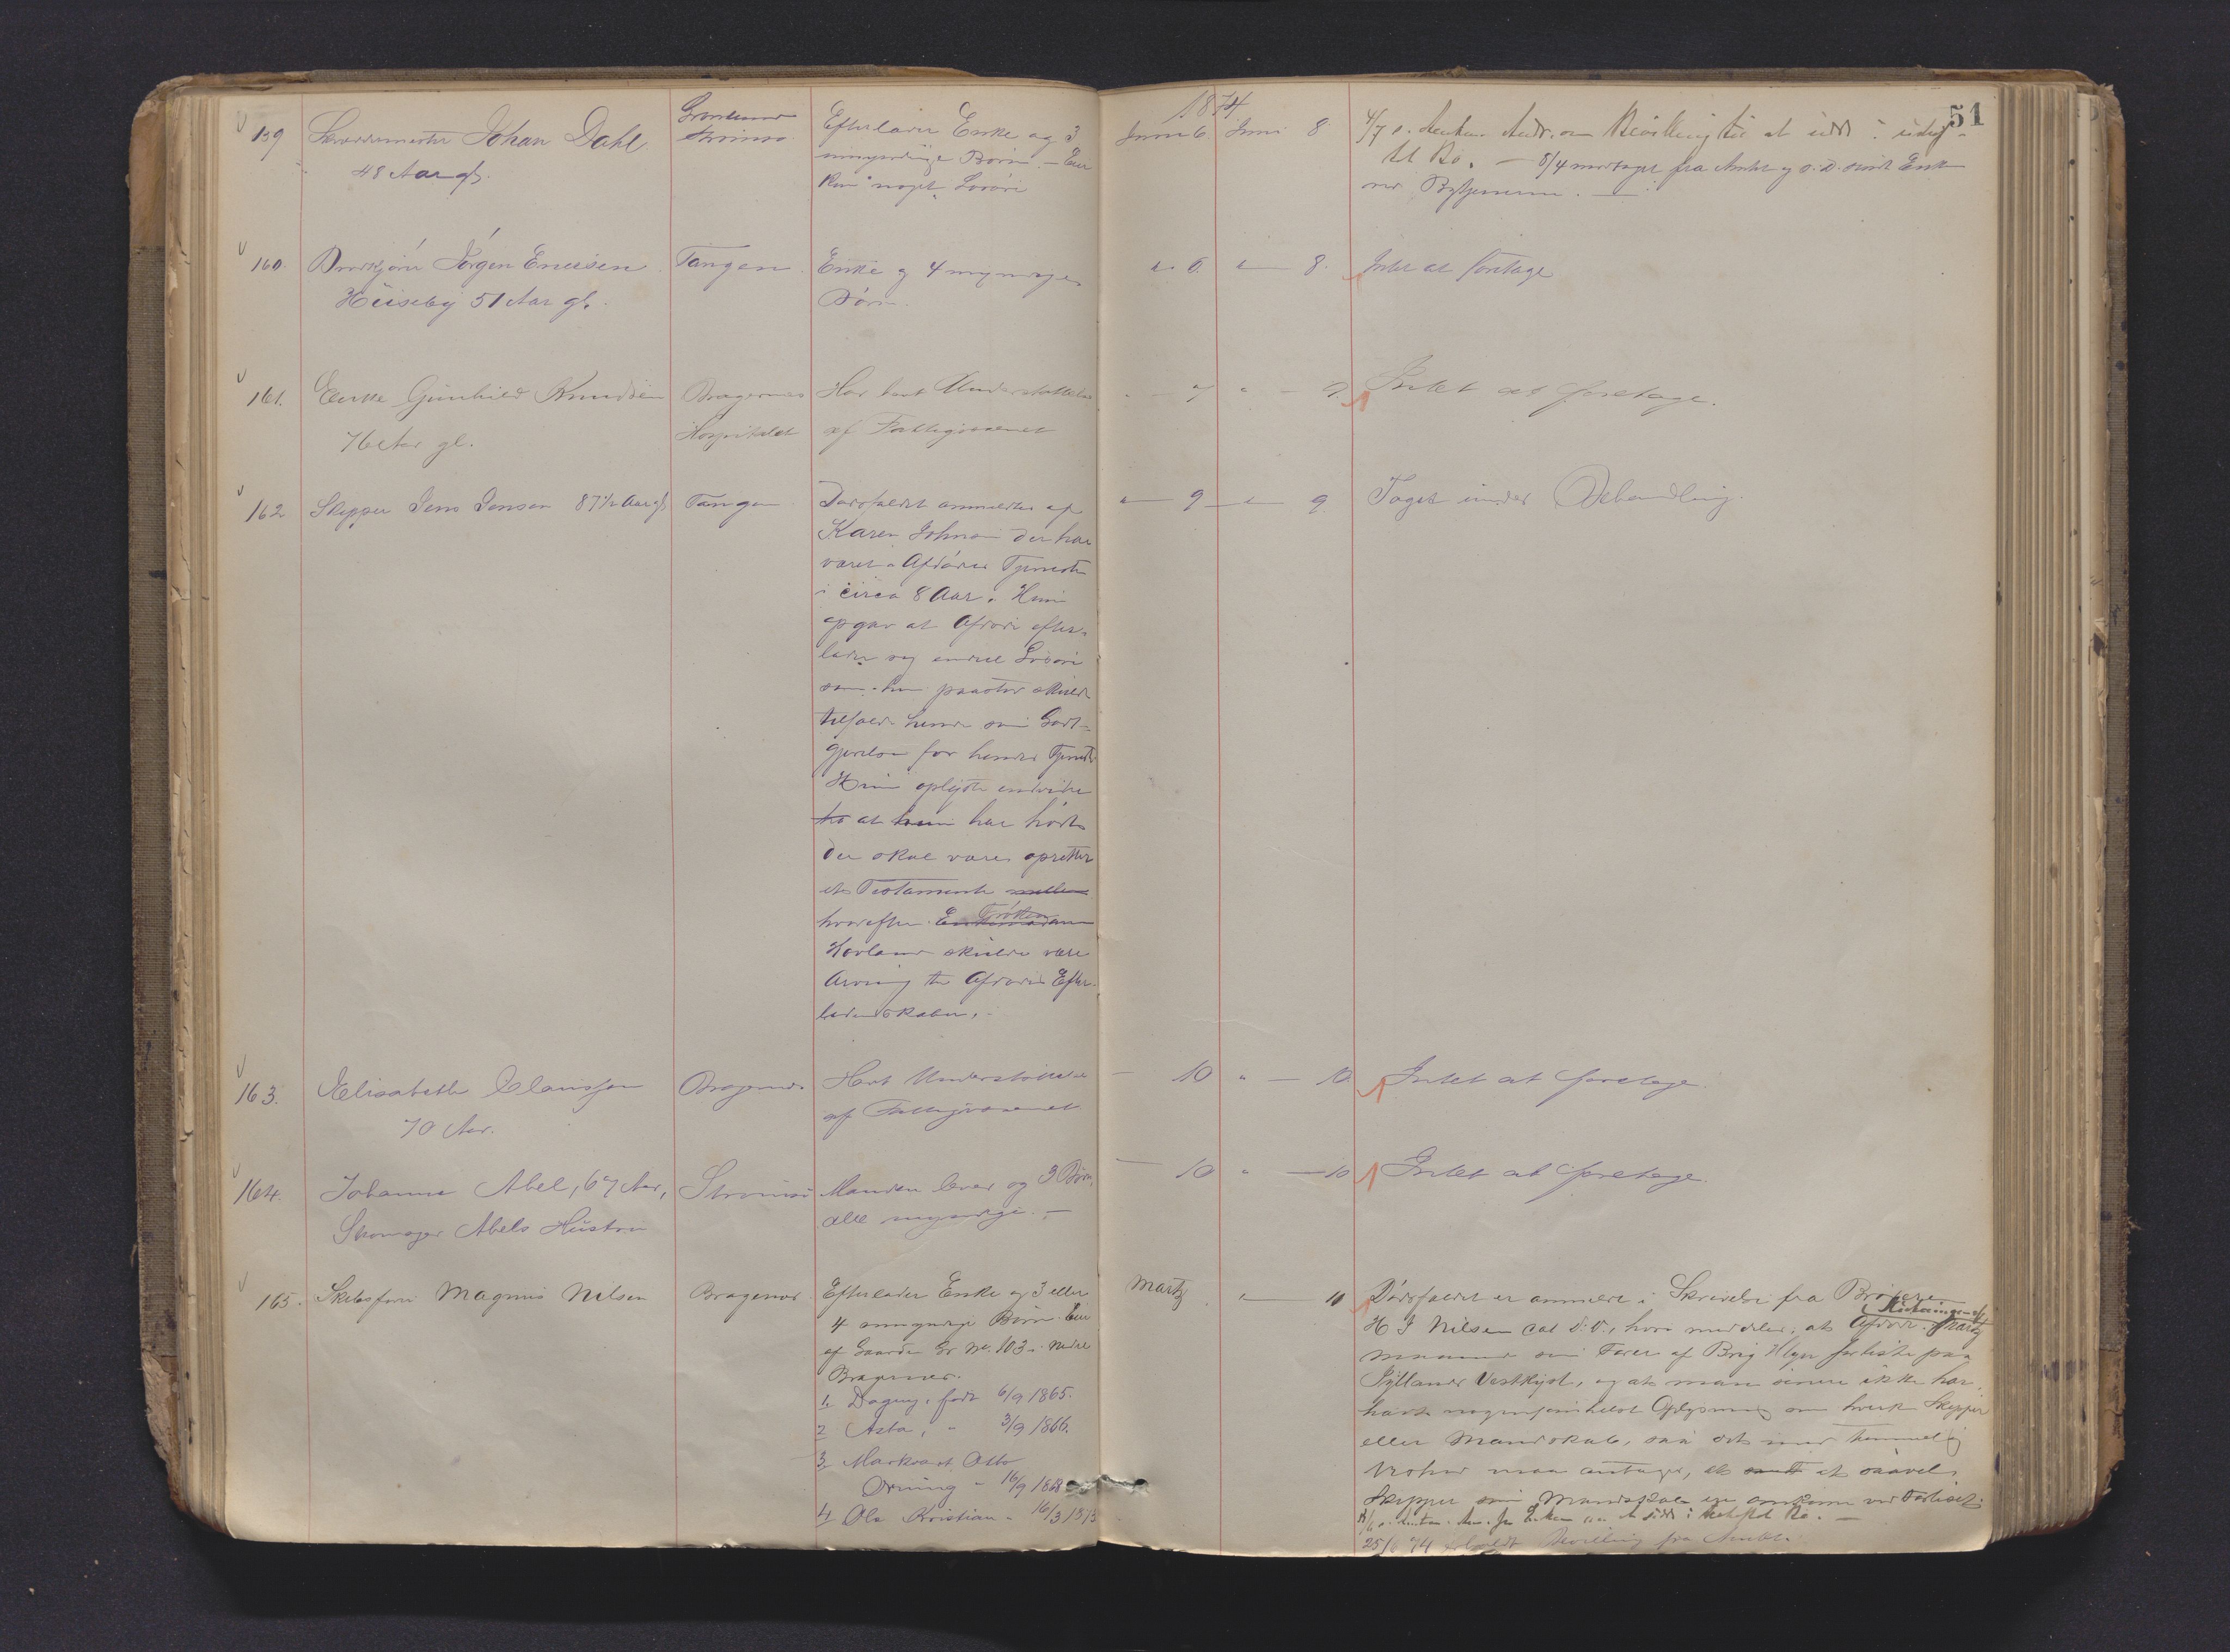 1874
51
159 Johan Dahl
48 Aar gl.
Strømsø
Efterlader Enke og 3
umyndige Børn. - Eier
kun noget Løsøre
Juni 6. Juni 8
4/7 s. Bevilling til at sidde i uskif-
tet Bo. - 8/4 modtaget fra Amtet og s. D. sendt Enken
ved Bytjeneren. -
160. Jørgen Enersen
Huseby 51 Aar gl.
Tangen.
Enke og 4 myndige
Børn.
" 6. " 8.
Intet at foretage
161. Enke Gunhild Knudsen
76 Aar gl.
Bragernes
Hospitalet
Har havt Understøttelse
af Fattigvæsenet
" - 7 " - 9
Intet at foretage.
162 Skipper Jens Jensen 87½ Aar gl
Tangen
Dødsfaldet anmeldtes af
Karen Johnsen der har
været i Afdødes Tjeneste
i circa 8 Aar. Hun
opgav at Afdøde efter-
lader sig endeel Løsøre
som hun paastod skulde
tilfalde hende som Godt-
gjørelse for hendes Tjeneste
Hun oplyste endvidere
at hun har hørt
der skal være oprettet
et Testamente mellem
hvorefter Frøken
Hovland skulde være
Arving til Afdødes Efter-
ladenskaber. -
" 9 " 9
Taget under Behandling.
163. Elisabeth Clausson
70 Aar.
Bragernes
Havt Understøttelse
af Fattigvæsenet
- 10 " - 10
Intet at foretage.
164. Johanne Abel, 67 Aar,
Skomager Abels Hustru
Strømsø
Manden lever og 3 Børn,
alle myndige. -
- 10 " - 10
Intet at foretage.
165. Skibsfører Magnus Nilsen
Bragernes
Efterlader Enke og 3 eller
4 umyndige Børn. Eier
af Gaarden Gr No. 103 i nedre
Bragernes.
1, Dagny, født 6/9 1865.
2 Asta, " 3/9 1866.
3, Markvart Otto
Orning " 16/9 1868
4 Ole Kristian " 16/3 1873
Martz " 10
Dødsfaldet er anmeldt i Skrivelse fra
H J Nilsen af d. D., hvori meddeles, at Afdøde i Slutningen af Martz
Maaned som Fører af Brig forliste paa
Jyllands Vestkyst, og at man senere ikke har
havt nogensomhelst Oplysning om hverken Skipper
eller Mandskab, saa det med temmelig
Vished maa antages, at saavel
Skipper som Mandskab er omkomne ved Forliset.
25/6 74 erholdt Bevilling fra Amtet.